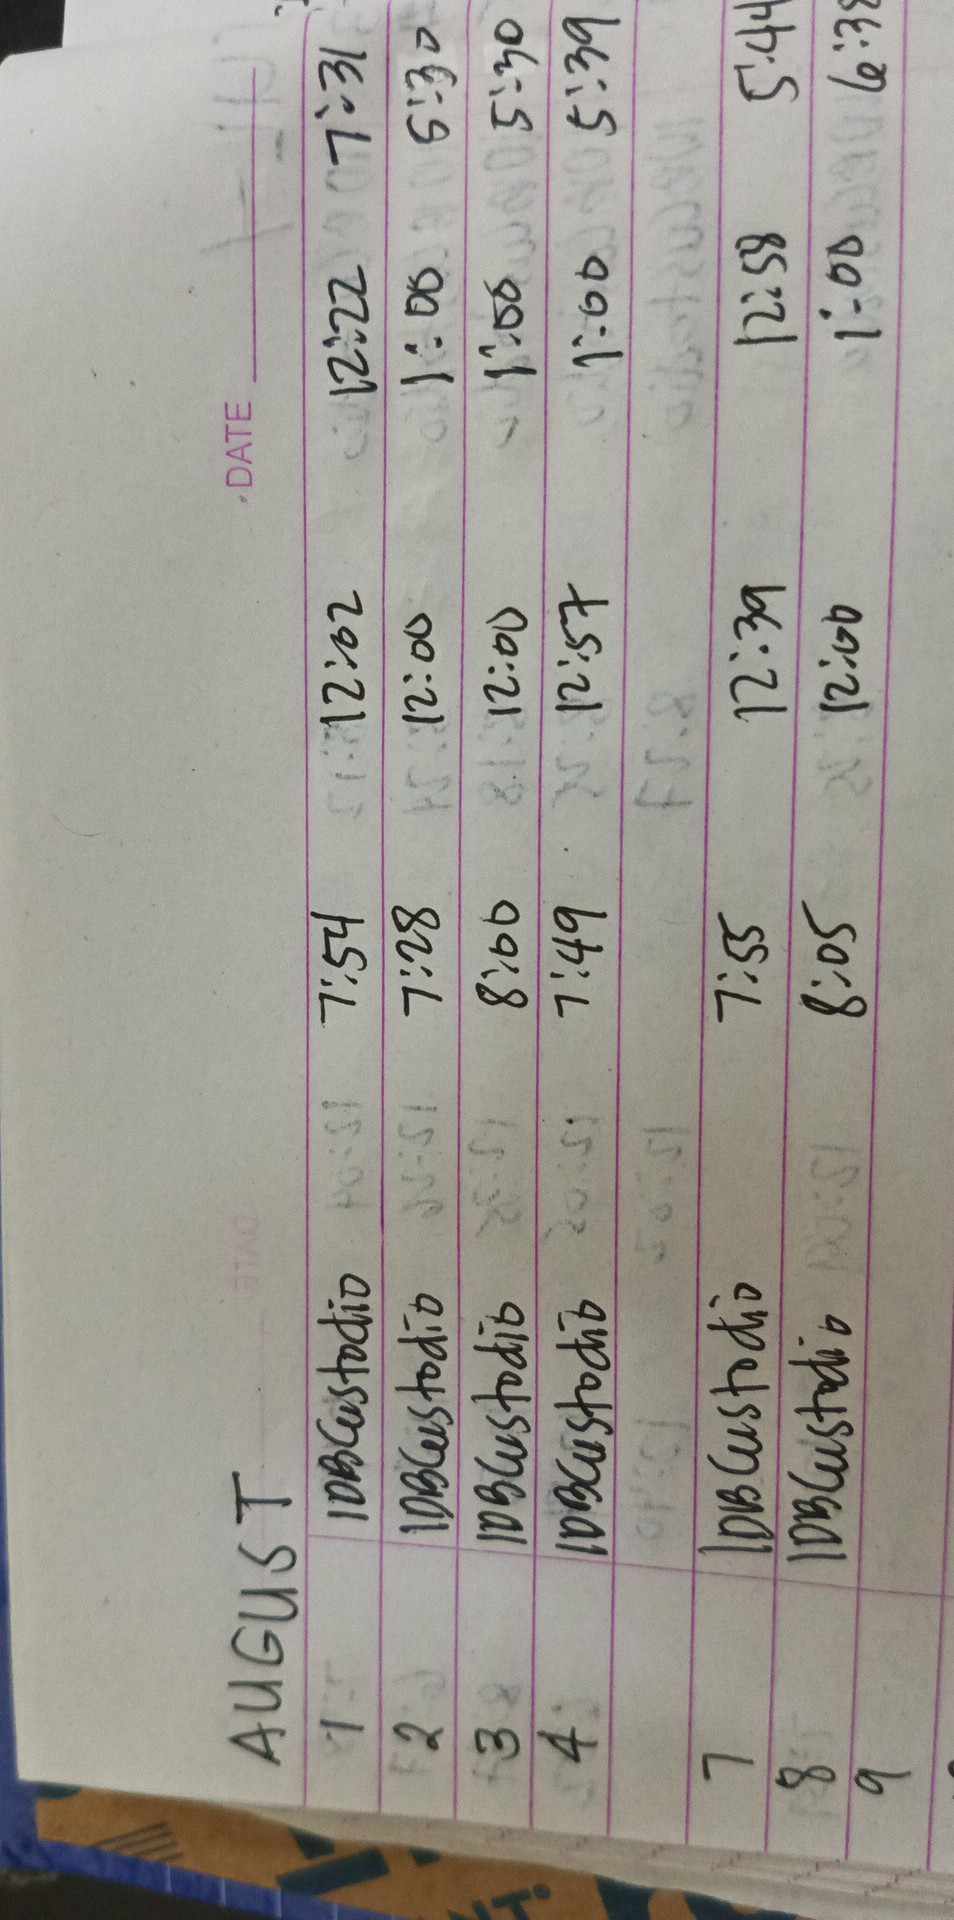 DATE
AUGUST
1 IDABCustodio 7:54 12:02 12:22 7:31
2 IDABCustodio 7:28 12:00 1:00 5:30
3 IDABCustodio 8:00 12:00 1:00 5:30
4 IDABCustodio 7:49 12:57 1:00 5:39
7 IDABCustodio 7:55 12:39 12:58 5:44
8 IDABCustodio 8:05 12:00 1:00 6:33
9